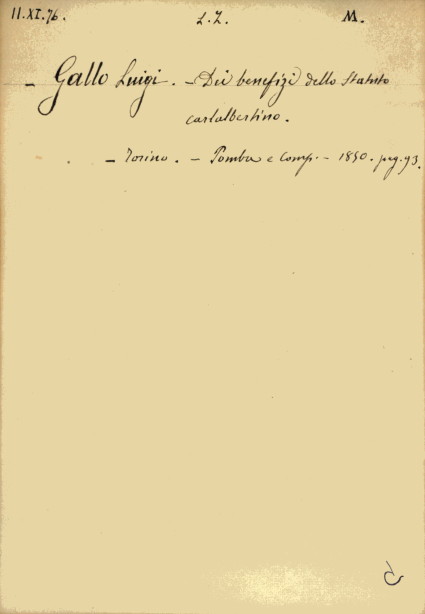 11.XI.76. L.Z. M.
- Gallo Luigi. - Dei benefizi dello Statuto
carlalbertino.
- Torino. - Pomba e Comp. - 1850. pag. 93.